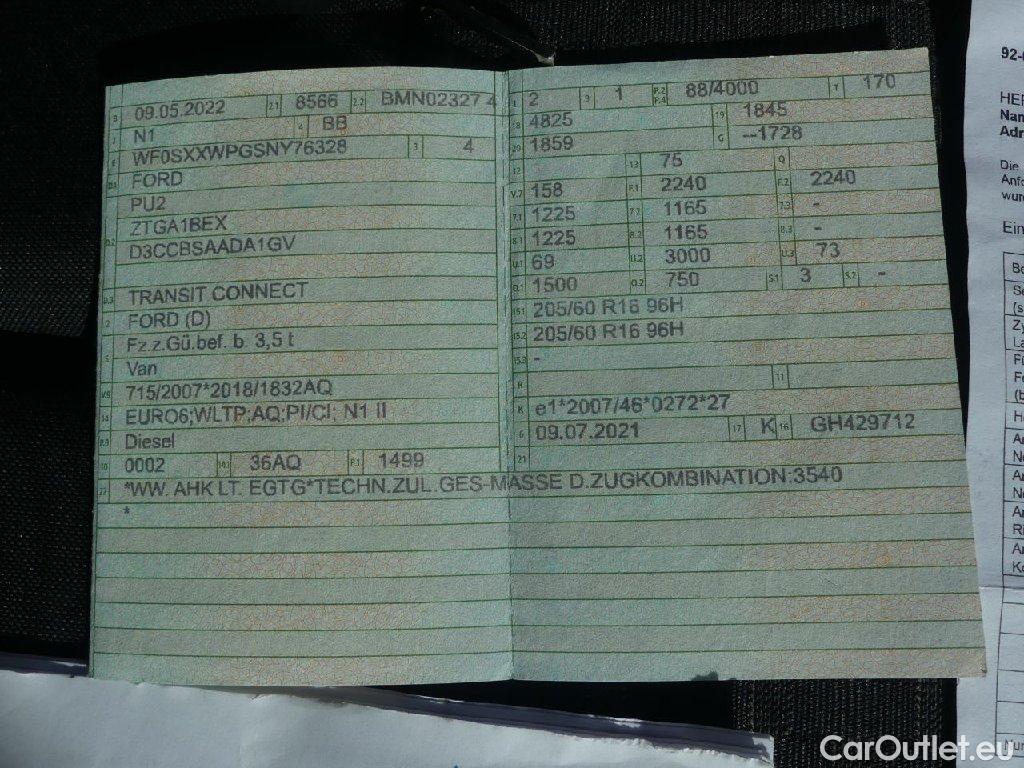 B 09.05.2022 2.1 8566 2.2 BMN02327 4
J N1 4 BB
E WF0SXXWPGSNY76328 3 4
D.1 FORD
PU2
ZTGA1BEX
D.2 D3CCBSAADA1GV
D.3 TRANSIT CONNECT
2 FORD (D)
Fz.z.Gü.bef. b 3,5 t
5 Van
V.9 715/2007*2018/1832AQ
14 EURO6;WLTP;AQ;PI/CI; N1 II
P.3 Diesel
10 0002 14.1 36AQ P.1 1499
22 *WW. AHK LT. EGTG*TECHN.ZUL.GES-MASSE D.ZUGKOMBINATION:3540
*
L 2 9 1 P.2 P.4 88/4000 T 170
18 4825 19 1845
20 1859 G --1728
12 13 75 Q
V.7 158 F.1 2240 F.2 2240
7.1 1225 7.2 1165 7.3 -
8.1 1225 8.2 1165 8.3 -
U.1 69 U.2 3000 U.3 73
O.1 1500 O.2 750 S.1 3 S.2 -
15.1 205/60 R16 96H
15.2 205/60 R16 96H
15.3 -
R 11
K e1*2007/46*0272*27
6 09.07.2021 17 K 16 GH429712
21
92-
HE
Nam
Adr
Die
Anfo
wurd
Ein
Be
Se
(s
Z
La
Fü
Fa
(b
H
An
No
An
No
An
Ri
An
Ko
Nur
CarOutlet.eu